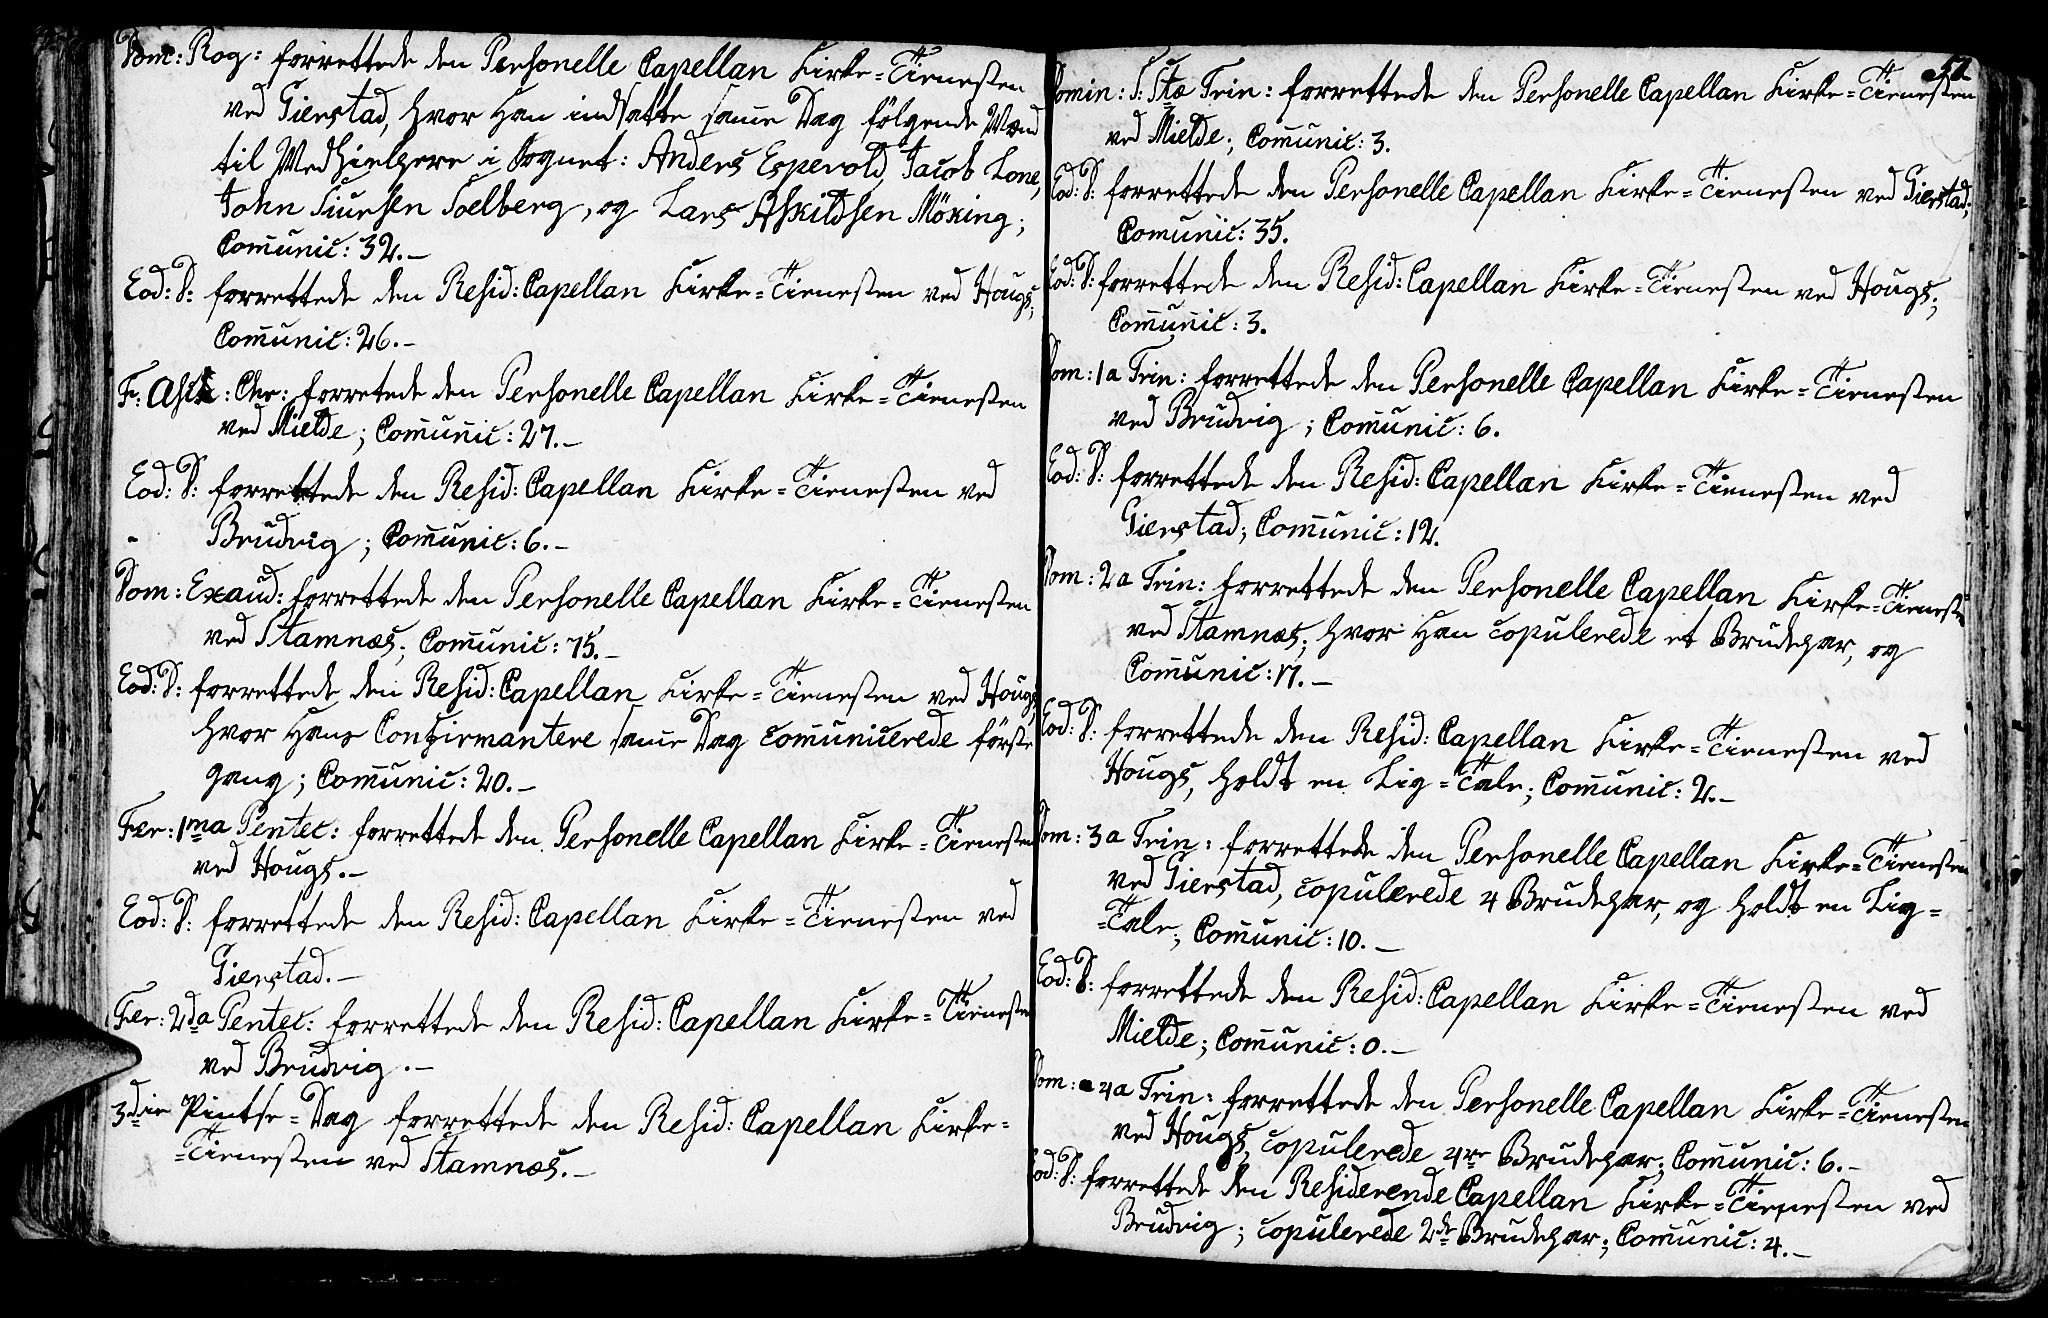 Dom: Rog: forrettede den Personelle Capellan Kirke=Tienesten
ved Gierstad, hvor Han indsatte samme Dag fölgende Mænd
til Medhielpere i Sognet: Anders Espevold, Jacob Lone,
John Siursen Soelberg, og Lars Askildsen Möxing;
Comunic: 32.–
Eod: D: forrettede den Resid: Capellan Kirke=Tienesten ved Hougs;
Comunic: 26.–
F: Asc: Chr: forretede den Personelle Capellan Kirke=Tienesten
ved Mielde; Comunic: 27.–
Eod: D: forrettede den Resid: Capellan Kirke=Tienesten ved
Brudvig; Comunic: 6.–
Dom: Exaud: forrettede den Personelle Capellan Kirke=Tienesten
ved Stamnæs; Comunic: 75.–
Eod: D: forrettede den Resid: Capellan Kirke=Tienesten ved Hougs,
hvor Hans Confirmantere samme Dag comunicerede förste
gang; Comunic: 20.–
Fer: 1ma Pentec: forrettede den Personelle Capellan Kirke=Tienesten
ved Hougs.–
Eod: D: forrettede den Resid: Capellan Kirke=Tienesten ved
Gierstad.–
Fer: 2da Pentec: forrettede den Resid: Capellan Kirke=Tienesten
ved Brudvig.–
3die Pintse=Dag forrettede den Resid: Capellan Kirke=
=Tienesten ved Stamnæs.–
52
Domin: S: Stæ Trin: forrettede den Personelle Capellan Kirke=Tienesten
ved Mielde; Comunic: 3.
Eod: D: forrettede den Personelle Capellan Kirke=Tienesten ved Gierstad;
Comunic: 35.
Eod: D: forrettede den Resid: Capellan Kirke=Tienesten ved Hougs;
Comunic: 3.
Dom: 1a Trin: forrettede den Personelle Capellan Kirke=Tienesten
ved Brudvig; Comunic: 6.
Eod: D: forrettede den Resid: Capellan Kirke=Tienesten ved
Gierstad; Comunic: 12.
Dom: 2a Trin: forrettede den Personelle Capellan Kirke=Tieneste
ved Stamnæs; hvor Han copulerede et Brudepar, og
Comunic: 17.–
Eod: D: forrettede den Resid: Capellan Kirke=Tienesten ved
Hougs, holdt en Lig=Tale; Comunic: 2.–
Dom: 3a Trin: forrettede den Personelle Capellan Kirke=Tienesten
ved Gierstad, copulerede 4 Brudepar, og holdt en Lig=
=Tale; Comunic: 10.–
Eod: D: forrettede den Resid: Capellan Kirke=Tienesten ved
Mielde; Comunic: 0.–
Dom: 4a Trin: forrettede den Personelle Capellan Kirke=Tienesten
ved Hougs, copulerede 4re Brudepar; Comunic: 6.–
Eod: D: forrettede den Residerende Capellan Kirke=Tienesten ved
Brudvig; copulerede 2de Brudepar; Comunic: 4.–